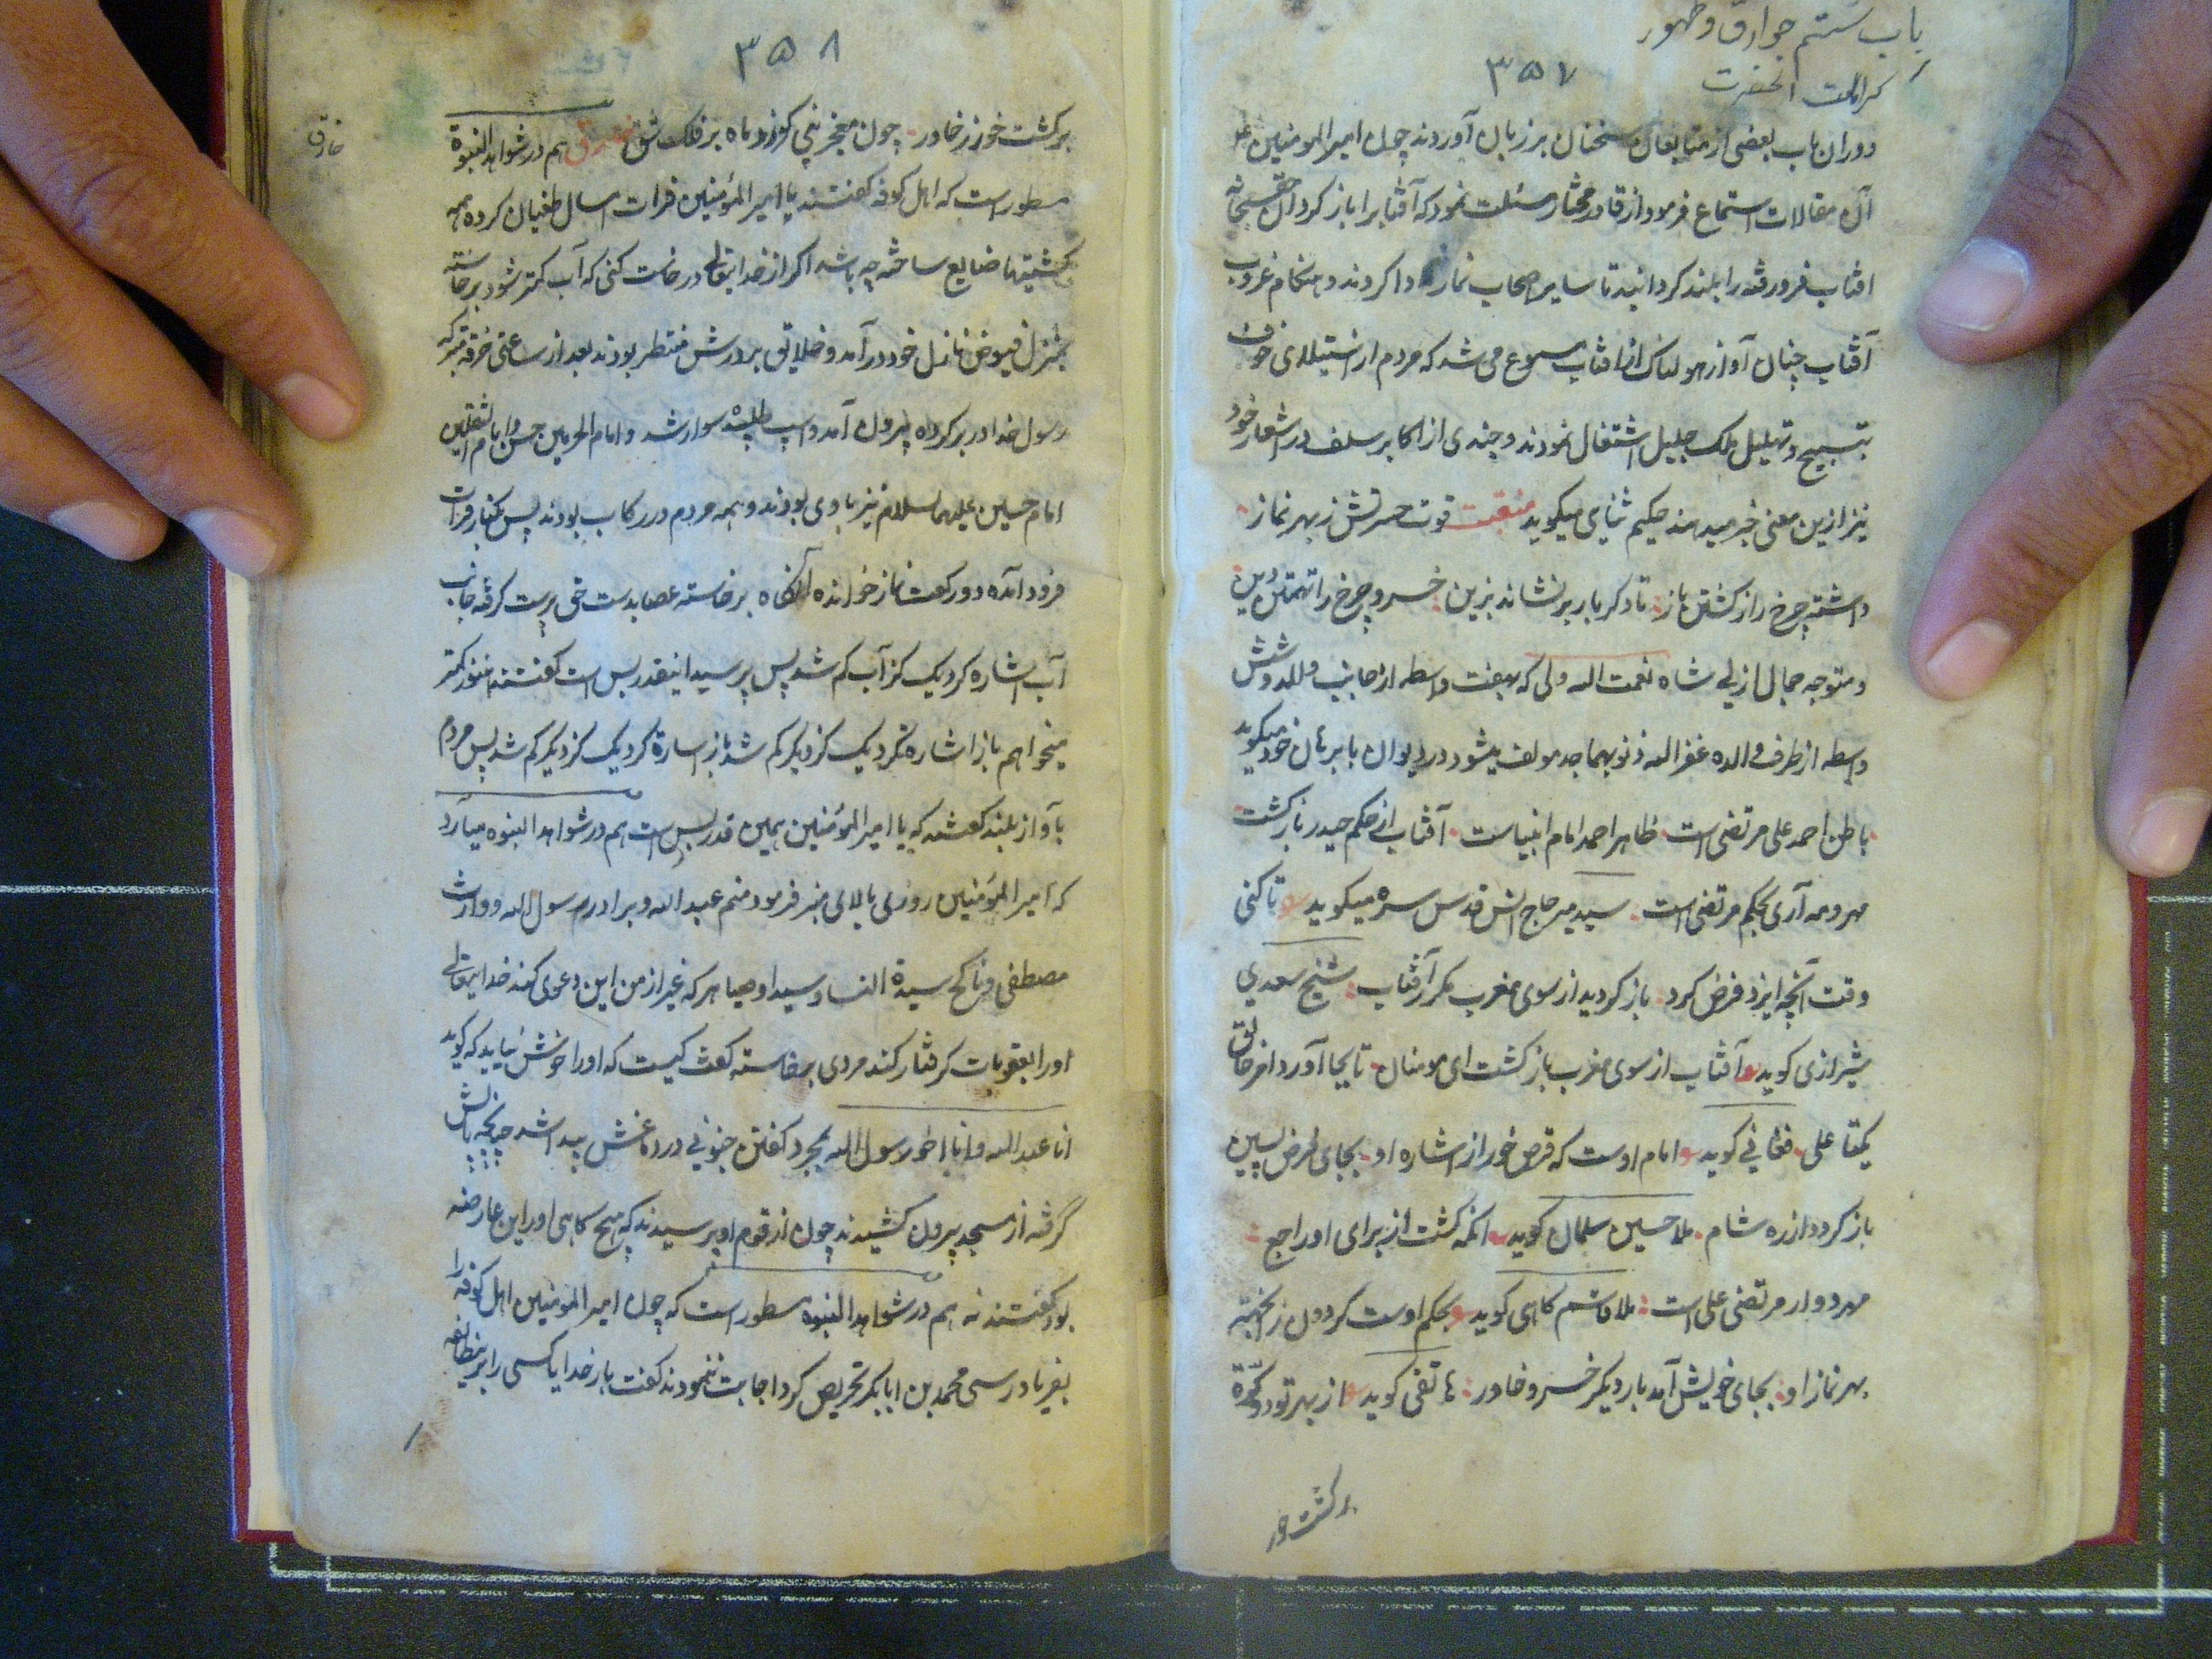 باب ششم خوارق و ظهور
کرامات آنحضرت
۳۵۷
دوران باب بعضی از متابعان سخنان بر زبان آوردند چون امیرالمومنین
آن مقالات استماع فرمود از قادر مختار مسئلت نمود که آفتابرا باز کردان حق سبحانه
افتاب فرو رفته را بلند کردانید تا سایر اصحاب نماز ادا کردند و هنکام غروب
آفتاب چنان آواز هولناک از افتاب مسموع می شد که مردم از استیلای خوف
بتسبیح و تهلیل ملک جلیل اشتغال نمودند و چندی از اکابر سلف در اشعار خود
نیز ازین معنی خبر میدهند حکیم ثنای میکوید منقبت قوت حسرتش ز بهر نماز
داشته چرخ را ز کشتن باز تا دکر بار بر نشاند بزین خسرو چرخ را تهمتن دین
و متوجه جمال ازلی شاه نعمت الله ولی که بهفت واسطه از جانب والد و شش
واسطه از طرف والده غفر الله ذنوبهما جد مولف میشود در دیوان با برهان خود میکوید
باطن احمد علی مرتضی است ظاهر احمد امام انبیاست آفتاب از حکم حیدر باز کشت
مهر و مه آری بحکم مرتضی است سید میر حاج انس قدس سره میکوید تا کنی
وقت آنچه ایزد فرض کرد باز کردید از سوی مغرب مکرر آفتاب شیخ سعدی
شیرازی کوید آفتاب از سوی مغرب باز کشت ای مومنان تا بجا آورد امر خالق
یکتا علی فغانی کوید امام اوست که قرص خور از اشاره او بجای فرض پسین
باز کردد از ره شام ملا حسین سلمان کوید انکه کشت از برای او راجع
مهر دوار مرتضی علی است ملا قاسم کاهی کوید بحکم اوست کردون ز انکه
بهر نماز او بجای خویش آمد بار دیکر خسرو خاور هاتفی کوید از بهر تو دو کره
برکشت خور
۳۵۸
برکشت خور ز خاور چون معجز نبی کز زو ماه بر فلک شق خارق هم در شواهد النبوة
خارق
مسطور است که اهل کوفه کفتند یا امیر المؤمنین فرات امسال طغیان کرده همه
کشتیها ضایع ساخته چه باشد اکر از خدایتعالی درخاست کنی که آب کمتر شود برخاسته
بمنزل فیوض نازل خود در آمد و خلایق بر درش منتظر بودند بعد از ساعتی خرقه متبرکه
رسول خدا در بر کرده بیرون آمد و اسپ طلبیده سوار شد و امام الحرمین حسن و امام الثقلین
امام حسین علیهما السلام نیز با وی بودند و همه مردم در رکاب بودند پس بکنار فرات
فرود آمده دو رکعت نماز خوانده آنکاه برخاسته عصا بدست حق پرست کرفته جانب
آب اشاره کرد یک کز آب کم شد پس پرسید اینقدر بس است کفتند هنوز کمتر
میخواهم باز اشاره کرد یک کز دیکر کم شد باز اشارة کرد یک کز دیکر کم شد پس مردم
بآواز بلند کفتند که یا امیر المؤمنین همین قدر بس است هم در شواهد النبوه میآرد
که امیر المؤمنین روزی بالای منبر فرمود منم عبد الله و برادرم رسول الله و وارث
مصطفی و ناکح سیدة النسا و سید اوصیا هر که غیر از من این دعوی کند خدایتعالی
اورا بعقوبات کرفتار کند مردی برخاسته کفت کیست که اورا خوش نیاید که کوید
انا عبد الله و انا اخو رسول الله بمجرد کفتن جنونی در دماغش پیدا شد چنانچه پایش
گرفته از مسجد بیرون کشیدند چون از قوم او پرسیدند که هیچ کاهی اورا این عارضه
بود کفتند نه هم در شواهد النبوه مسطور است که چون امیر المومنین اهل کوفه را
بفریادرسی محمد بن ابابکر تحریص کرد اجابت ننمودند کفت بار خدایا کسی را برین طایفه